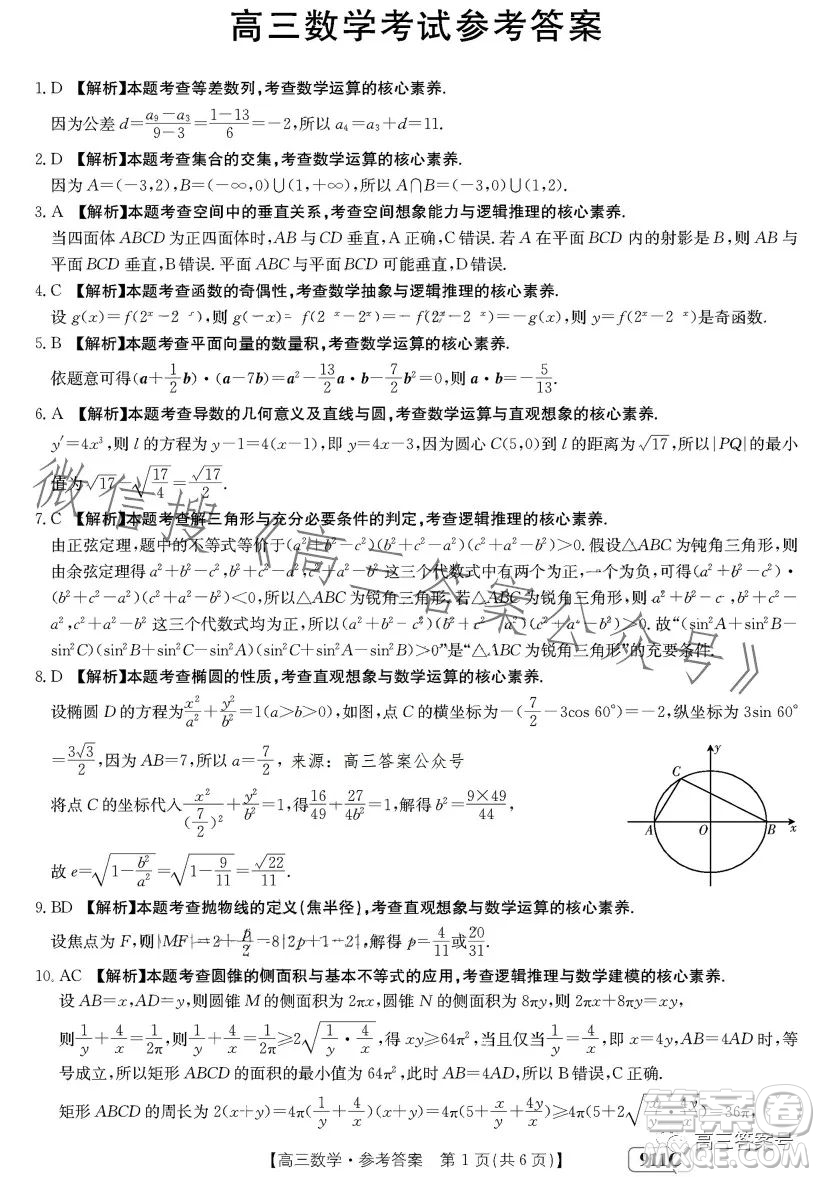 高三数学考试参考答案
1. D 【解析】本题考查等差数列,考查数学运算的核心素养.
因为公差 d=(a₉-a₃)/(9-3)=(1-13)/6=-2,所以 a₄=a₃+d=11.
2. D 【解析】本题考查集合的交集,考查数学运算的核心素养.
因为 A=(-3,2),B=(-∞,0)∪(1,+∞),所以 A∩B=(-3,0)∪(1,2).
3. A 【解析】本题考查空间中的垂直关系,考查空间想象能力与逻辑推理的核心素养.
当四面体 ABCD 为正四面体时,AB 与 CD 垂直,A 正确,C 错误. 若 A 在平面 BCD 内的射影是 B,则 AB 与
平面 BCD 垂直,B 错误. 平面 ABC 与平面 BCD 可能垂直,D 错误.
4. C 【解析】本题考查函数的奇偶性,考查数学抽象与逻辑推理的核心素养.
设 g(x)=f(2ˣ-2⁻ˣ),则 g(-x)=f(2⁻ˣ-2ˣ)=-f(2ˣ-2⁻ˣ)=-g(x),则 y=f(2ˣ-2⁻ˣ)是奇函数.
5. B 【解析】本题考查平面向量的数量积,考查数学运算的核心素养.
依题意可得(a+1/2 b)·(a-7b)=a²-13/2 a·b-7/2 b²=0,则 a·b=-5/13.
6. A 【解析】本题考查导数的几何意义及直线与圆,考查数学运算与直观想象的核心素养.
y′=4x³,则 l 的方程为 y-1=4(x-1),即 y=4x-3,因为圆心 C(5,0)到 l 的距离为 √17,所以|PQ|的最小
值为 √17-√(17/4)=√17/2.
7. C 【解析】本题考查解三角形与充分必要条件的判定,考查逻辑推理的核心素养.
由正弦定理,题中的不等式等价于(a²+b²-c²)(b²+c²-a²)(c²+a²-b²)>0. 假设△ABC 为钝角三角形,则
由余弦定理得 a²+b²-c²,b²+c²-a²,c²+a²-b² 这三个代数式中有两个为正,一个为负,可得(a²+b²-c²)·
(b²+c²-a²)(c²+a²-b²)<0,所以△ABC 为锐角三角形. 若△ABC 为锐角三角形,则 a²+b²-c²,b²+c²-
a²,c²+a²-b² 这三个代数式均为正,所以(a²+b²-c²)(b²+c²-a²)(c²+a²-b²)>0. 故“(sin²A+sin²B-
sin²C)(sin²B+sin²C-sin²A)(sin²C+sin²A-sin²B)>0”是“△ABC 为锐角三角形”的充要条件.
8. D 【解析】本题考查椭圆的性质,考查直观想象与数学运算的核心素养.
设椭圆 D 的方程为 x²/a²+y²/b²=1(a>b>0),如图,点 C 的横坐标为-(7/2-3cos 60°)=-2,纵坐标为 3sin 60°
=3√3/2,因为 AB=7,所以 a=7/2, 来源: 高三答案公众号
将点 C 的坐标代入 x²/(7/2)²+y²/b²=1,得 16/49+27/4b²=1,解得 b²=(9×49)/44,
故 e=√(1-b²/a²)=√(1-9/11)=√22/11.
y
C
A
O
B
x
9. BD 【解析】本题考查抛物线的定义(焦半径),考查直观想象与数学运算的核心素养.
设焦点为 F,则|MF|=2+p/2=8|2p+1-2|,解得 p=4/11或20/31.
10. AC 【解析】本题考查圆锥的侧面积与基本不等式的应用,考查逻辑推理与数学建模的核心素养.
设 AB=x,AD=y,则圆锥 M 的侧面积为 2πx,圆锥 N 的侧面积为 8πy,则 2πx+8πy=xy,
则 1/y+4/x=1/2π,则 1/y+4/x=1/2π≥2√(1/y·4/x),得 xy≥64π²,当且仅当 1/y=4/x,即 x=4y,AB=4AD 时,等
号成立,所以矩形 ABCD 的面积的最小值为 64π²,此时 AB=4AD,所以 B 错误,C 正确.
矩形 ABCD 的周长为 2(x+y)=4π(1/y+4/x)(x+y)=4π(5+x/y+4y/x)≥4π(5+2√(x/y·4y/x))=36π,
【高三数学·参考答案 第 1 页(共 6 页)】
911C
微信搜《高三答案公众号》
答案圈
高三答案号